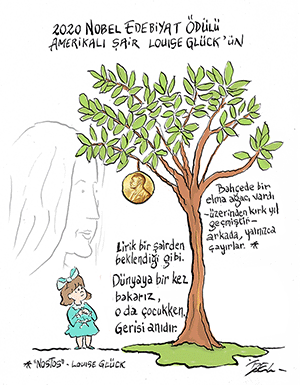 2020 NOBEL EDEBİYAT ÖDÜLÜ
AMERİKALI ŞAİR LOUISE GLÜCK'ÜN
Bahçede bir
elma ağacı vardı
-üzerinden kırk yıl
geçmiştir-
arkada, yalnızca
çayırlar. *
Lirik bir şairden
beklendiği gibi.
Dünyaya bir kez
bakarız,
o da çocukken,
Gerisi anıdır.
* "NOSTOS" - LOUISE GLÜCK